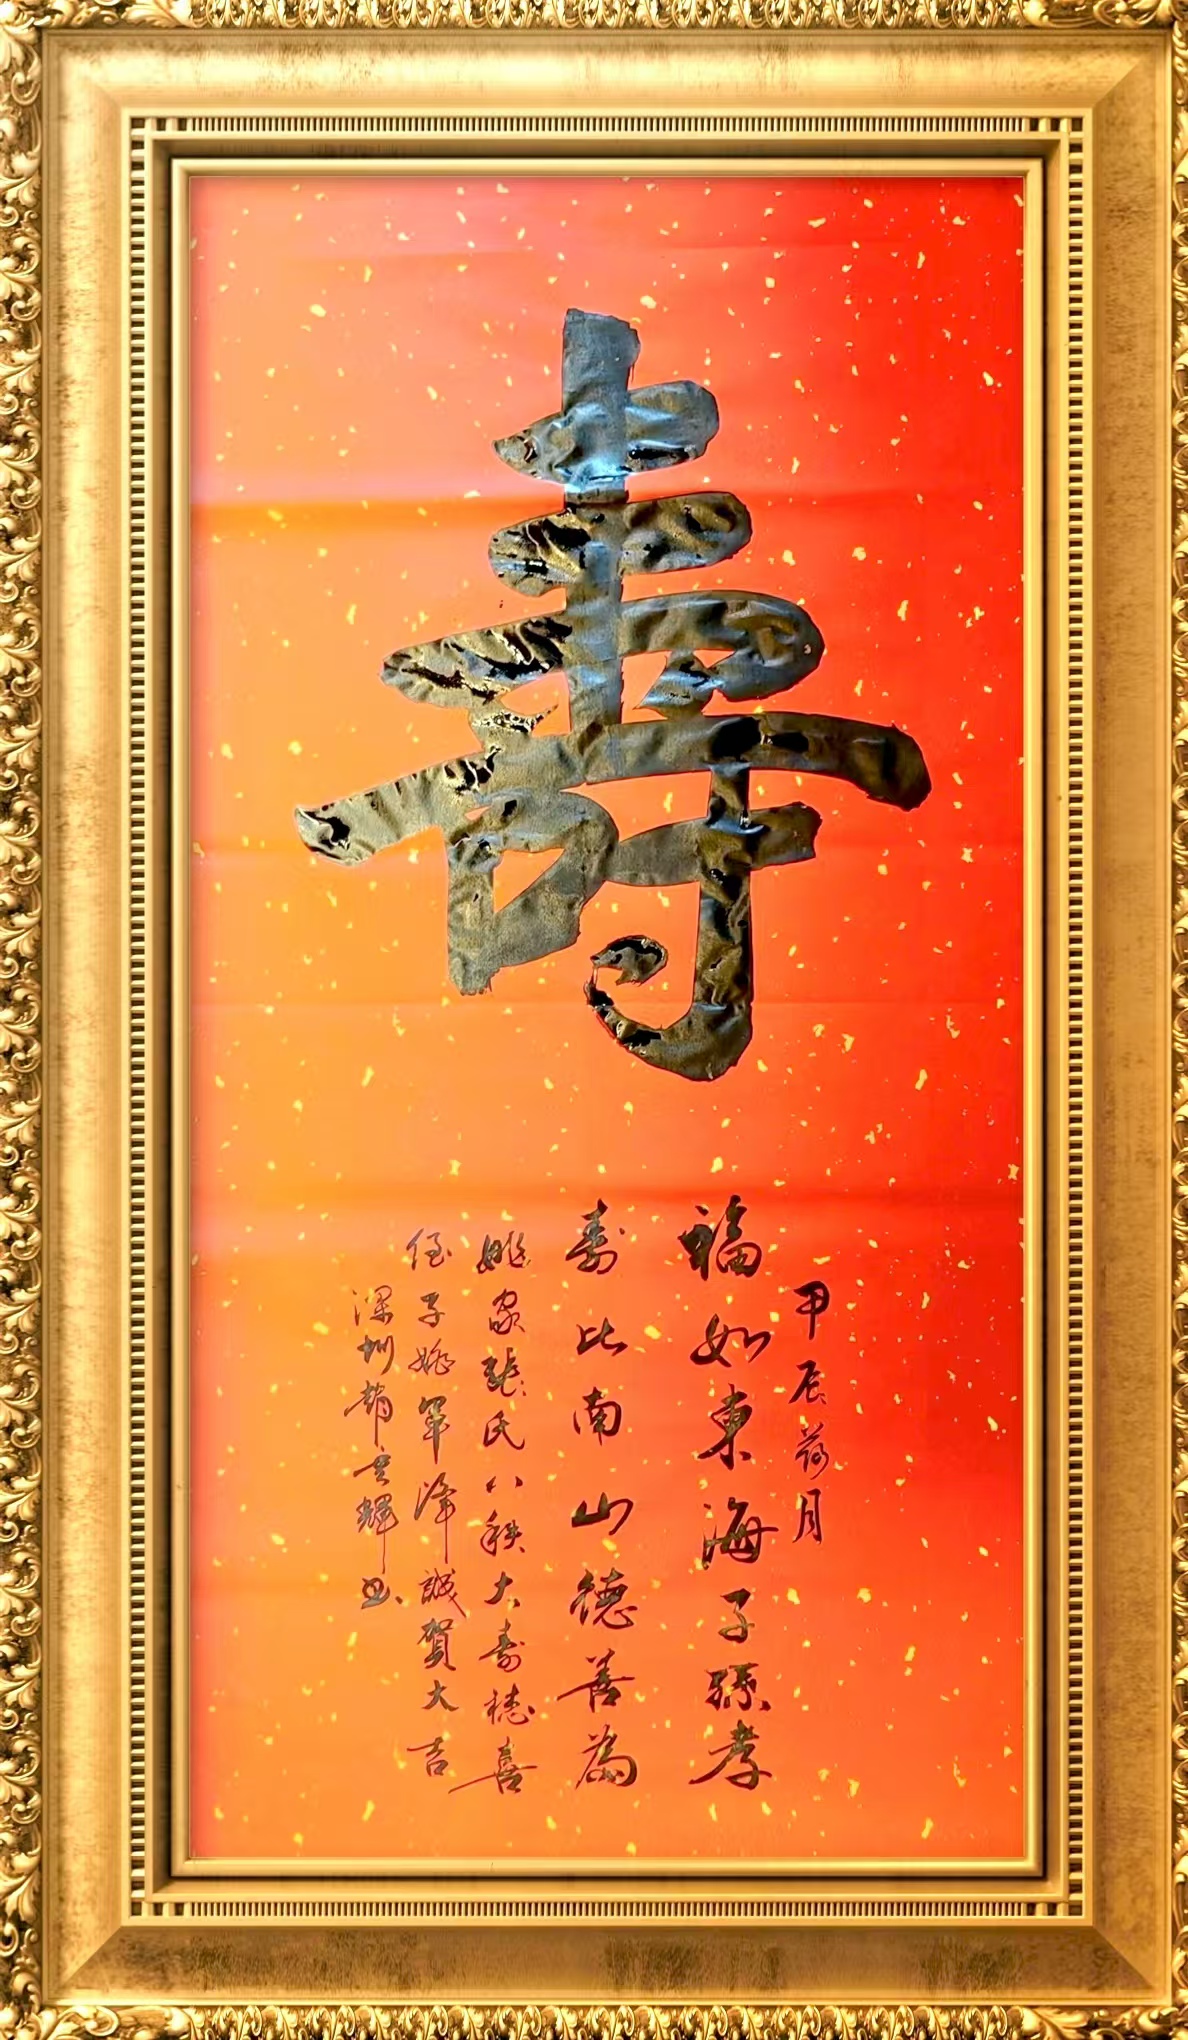 壽
甲辰荷月
福如東海子孫孝
壽比南山德善為
姚家張氏八秩大壽禧喜
侄子姚軍澤誠賀大吉
深圳趙玄輝書